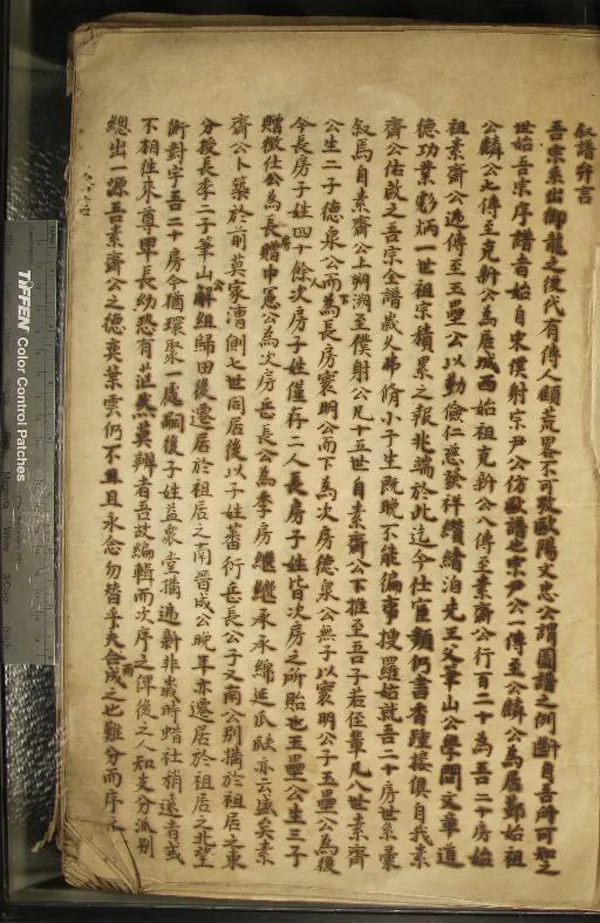 叙譜弁言
吾宗系出御龍之後代有傳人顧荒畧不可攷歐陽文忠公謂圖譜之例斷自吾所可知之
世始吾宗序譜者始自宋僕射宗尹公仿歐譜也宗尹公一傳至公麟公為居鄞始祖
公麟公七傳至克新公為居城西始祖克新公八傳至素齋公行百二十為吾二十房始
祖素齋公逓傳至玉壘公以勤儉仁慈發祥纘緒洎先王父筆山公學問文章道
德功業彪炳一世祖宗積累之報兆端於此迄今仕宦頻仍書香踵接俱自我素
齋公佑啟之吾宗全譜歲久弗脩小子生既晚不能徧事搜羅姑就吾二十房世系彙
叙焉自素齋公上朔溯至僕射公凡十五世自素齋公下推至吾子若侄輩凡八世素齋
公生二子德泉公而下為長房寰明公而下為次房德泉公無子以寰明公子玉壘公為後
今長房子姓四十餘人次房子姓僅存二人長房子姓皆次房之所貽也玉壘公生三子
贈徵仕公為長房贈中憲公為次房岳長公為季房繼繼承承綿延瓜瓞亦云盛矣素
齋公卜築於前莫家漕側七世同居後以子姓蕃衍岳長公子又南公別搆於祖居之東
分授長季二子筆山公解組歸田後遷居於祖居之南晉成公晚年亦遷居於祖居之北望
衡對宇吾二十房今猶環聚一處嗣後子姓益衆堂搆迭新非歲時蜡社稍遠者或
不相往來尊卑長幼恐有茫然莫辨者吾故編輯而次序之俾後之人知支分派別
總出一源吾素齋公之德奕葉雲仍不且永念勿替乎夫合而成之也難分而序之
TIFFEN Color Control Patches